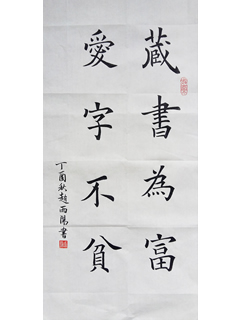 藏書為富
愛字不貧
丁酉秋趙雨陽書